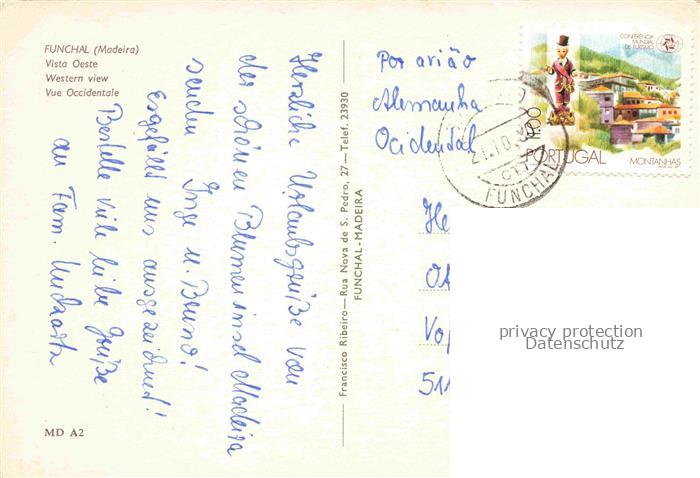 FUNCHAL (Madeira)
Vista Oeste
Western view
Vue Occidentale
Herzliche Urlaubsgrüße von
der schönen Blumeninsel Madeira
senden Inge u. Bernd!
Es gefällt uns ausgezeichnet!
Bestelle viele liebe Grüße
an Fam.
MD A2
Francisco Ribeiro—Rua Nova de S. Pedro, 27—Telef. 23930
FUNCHAL-MADEIRA
Por avião
Alemanha
Ocidental
CONFERÊNCIA
MUNDIAL
DE TURISMO
PORTUGAL
MONTANHAS
FUNCHAL
He
Vo
511
privacy protection
Datenschutz